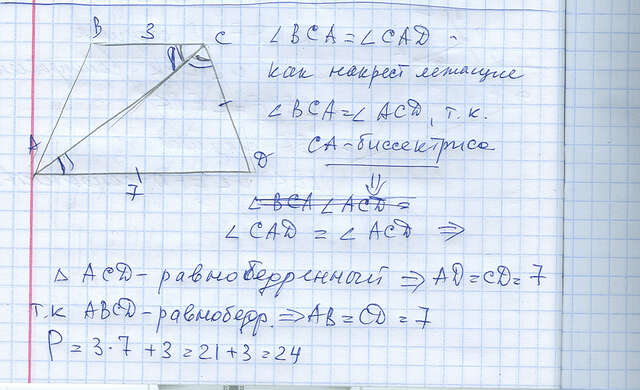 B 3 C
A
D
7
∠BCA = ∠CAD -
как накрест лежащие
∠BCA = ∠ACD, т.к.
CA - биссектриса
⇓
∠BCA ∠ACD =
∠CAD = ∠ACD ⇒
△ ACD - равнобедренный ⇒ AD = CD = 7
т.к ABCD - равнобедр. ⇒ AB = CD = 7
P = 3·7 + 3 = 21 + 3 = 24